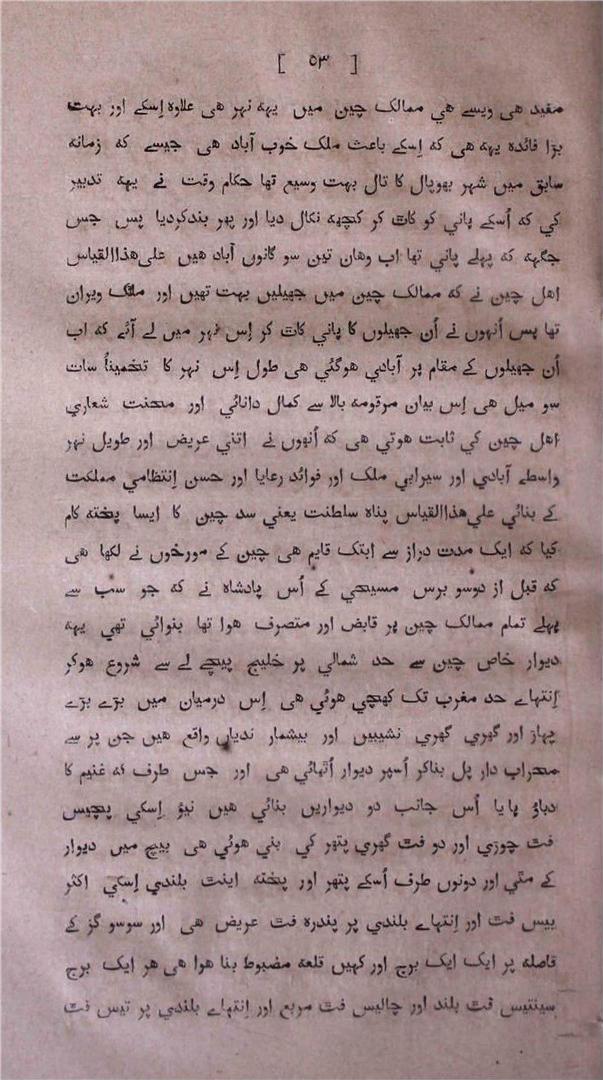 [ ٥٣ ]
مفید هی ویسے هي ممالک چین میں یهه نهر هی علاوه اِسکے اور بهت
بڑا فائده یهه هی که اِسکے باعث ملک خوب آباد هی جیسے که زمانه
سابق میں شهر بهوپال کا تال بهت وسیع تها حکام وقت نے یهه تدبیر
کي که اُسکے پاني کو کات کر کچهه نکال دیا اور پهر بندکردیا پس جس
جگهه که پهلے پاني تها اب وهان تین سو گانوں آباد هیں علی هذاالقیاس
اهل چین نے که ممالک چین میں جهیلیں بهت تهیں اور ملک ویران
تها پس اُنهوں نے اُن جهیلوں کا پاني کات کر اِس نهر میں لے آئے که اب
اُن جهیلوں کے مقام پر آبادي هوگئي هی طول اِس نهر کا تخمیناً سات
سو میل هی اِس بیان مرقومه بالا سے کمال دانائي اور محنت شعاري
اهل چین کي ثابت هوتي هی که اُنهوں نے اتني عریض اور طویل نهر
واسطے آبادي اور سیرابي ملک اور فوائد رعایا اور حسن اِنتظامي مملکت
کے بنائي علي هذاالقیاس پناه سلطنت یعني سد چین کا ایسا پخته کام
کیا که ایک مدت دراز سے ابتک قایم هی چین کے مورخوں نے لکها هی
که قبل از دوسو برس مسیحي کے اُس پادشاه نے که جو سب سے
پهلے تمام ممالک چین پر قابض اور متصرف هوا تها بنوائي تهي یهه
دیوار خاص چین سے حد شمالي پر خلیج پیچے لے سے شروع هوکر
اِنتهاے حد مغرب تک کهنچي هوئي هی اِس درمیان میں بڑے بڑے
پهاڑ اور گهري گهري نشیبیں اور بیشمار ندیاں واقع هیں جن پر سے
محراب دار پل بناکر اُسپر دیوار اُتهائي هی اور جس طرف که غنیم کا
دباؤ پایا اُس جانب دو دیواریں بنائي هیں نیؤ اِسکي پچیس
فت چوڑي اور دو فت گهري پتهر کي بني هوئي هی بیچ میں دیوار
کے مٹي اور دونوں طرف اُسکے پتهر اور پخته اینت بلندي اِسکي اکثر
بیس فت اور اِنتهاے بلندي پر پندره فت عریض هی اور سوسو گز کے
فاصله پر ایک ایک برج اور کهیں قلعه مضبوط بنا هوا هی هر ایک برج
سینتیس فت بلند اور چالیس فت مربع اور اِنتهاے بلندي پر تیس فت